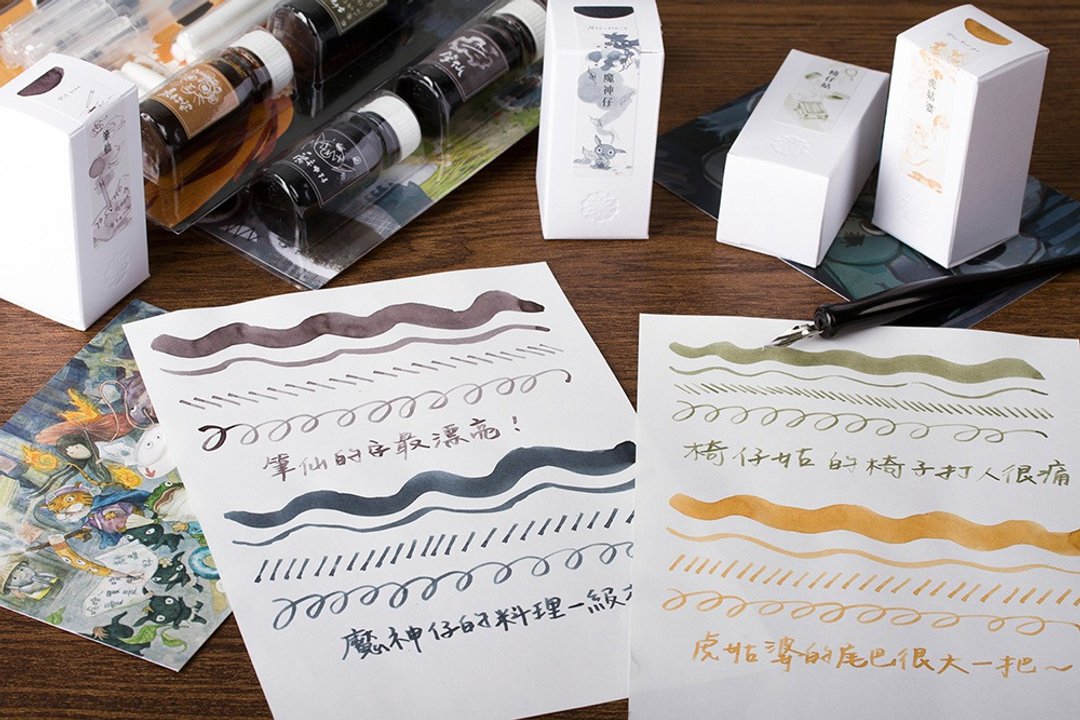 魔神仔
椅仔姑
虎姑婆
筆仙
筆仙的字最漂亮！
魔神仔的料理一級
椅仔姑的椅子打人很痛
虎姑婆的尾巴很大一把～